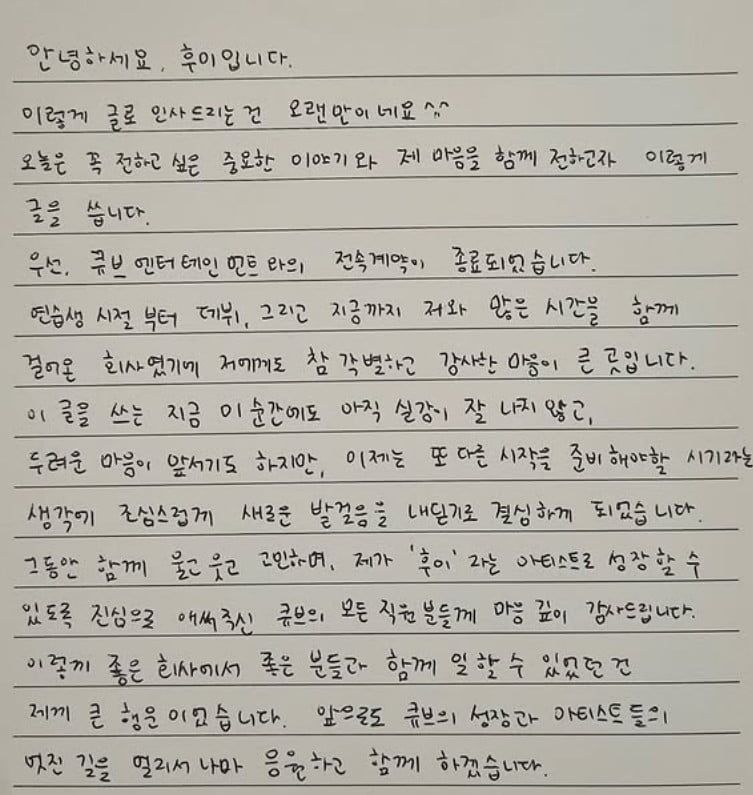 안녕하세요, 후이입니다.
이렇게 글로 인사드리는건 오랜만이네요^^
오늘은 꼭 전하고 싶은 중요한 이야기와 제 마음을 함께 전하고자 이렇게
글을 씁니다.
우선, 큐브엔터테인먼트와의 전속계약이 종료되었습니다.
연습생 시절부터 데뷔, 그리고 지금까지 저와 많은 시간을 함께
걸어온 회사였기에 저에게도 참 각별하고 감사한 마음이 큰 곳입니다.
이 글을 쓰는 지금 이 순간에도 아직 실감이 잘 나지 않고,
두려운 마음이 앞서기도 하지만, 이제는 또 다른 시작을 준비해야할 시기라는
생각에 조심스럽게 새로운 발걸음을 내딛기로 결심하게 되었습니다.
그동안 함께 울고 웃고 고민하며, 제가 '후이' 라는 아티스트로 성장할 수
있도록 진심으로 애써주신 큐브의 모든 직원분들께 마음 깊이 감사드립니다.
이렇게 좋은 회사에서 좋은 분들과 함께 일할 수 있었던 건
제게 큰 행운이었습니다. 앞으로도 큐브의 성장과 아티스트들의
멋진 길을 멀리서나마 응원하고 함께 하겠습니다.